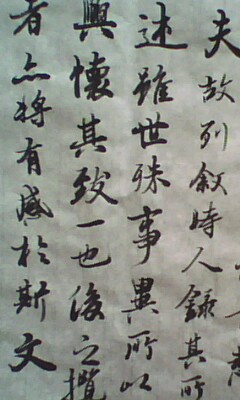 夫故列叙時人錄其所
述雖世殊事異所以
興懷其致一也後之攬
者亦將有感於斯文